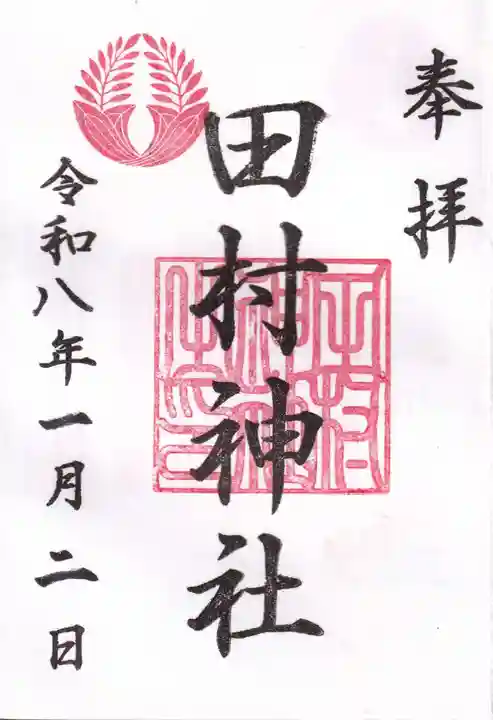 奉拝
田村神社
令和八年一月二日